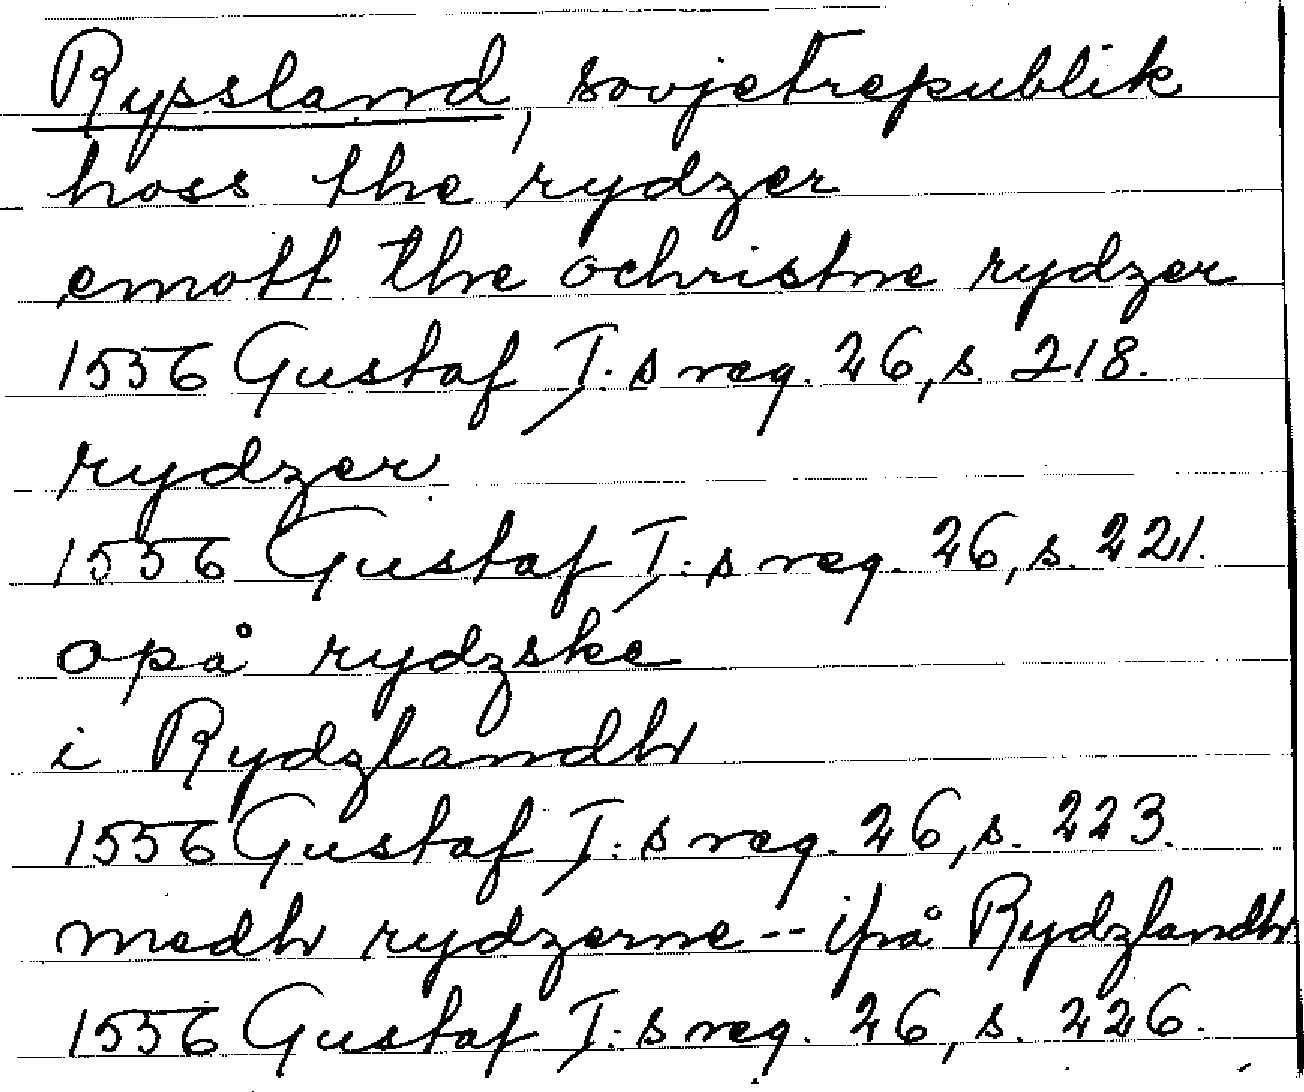 Ryssland, sovjetrepublik
hoss the rydzer
emott the ochristne rydzer
1556 Gustaf I:s reg. 26, s. 218.
rydzer
1556 Gustaf I:s reg. 26, s. 221.
opå rydzske
i Rydzlandh
1556 Gustaf I:s reg. 26, s. 223.
medh rydzerne -- ifrå Rydzlandh
1556 Gustaf I:s reg. 26, s. 226.